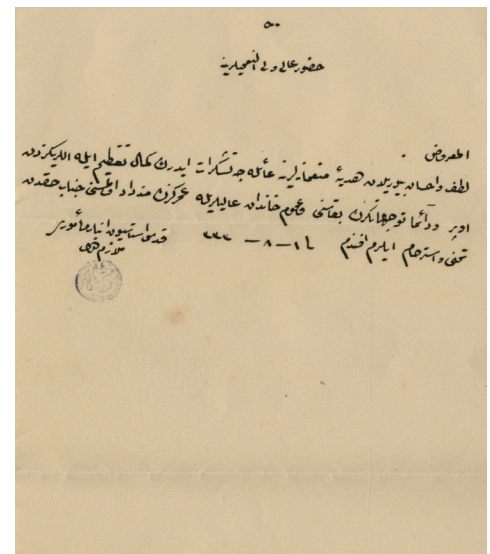 حضور عالی ولی النعمیلرینه
المعروض
لطف و احسان بیوریلان هدیهٔ منعمانه‌لرینه عائله‌جه تشکرات ایدرك کمال تعظیم ایله اللریکزدن
اوپر و دائما توجهاتکزك بقاسنی و عموم خاندان عالیلریله عمرکزك مزداد اولمسنی جناب حقدن
تمنی و استرحام ایلرم افندم ٨ - ٣٣٣
قدس استاسیون انبار مأموری
ملازم